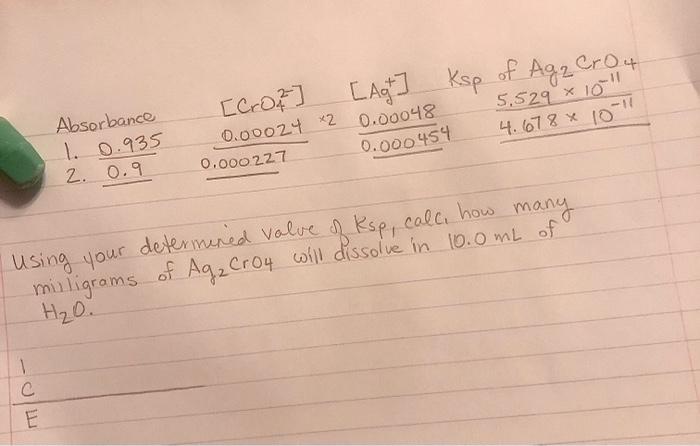 Absorbance [CrO₄²⁻] [Ag⁺] Ksp of Ag₂CrO₄
1. 0.935 0.00024 ×2 0.00048 5.529 × 10⁻¹¹
2. 0.9 0.000227 0.000454 4.678 × 10⁻¹¹
Using your determined value of Ksp, calc. how many
milligrams of Ag₂CrO₄ will dissolve in 10.0 mL of
H₂O.
I
C
E